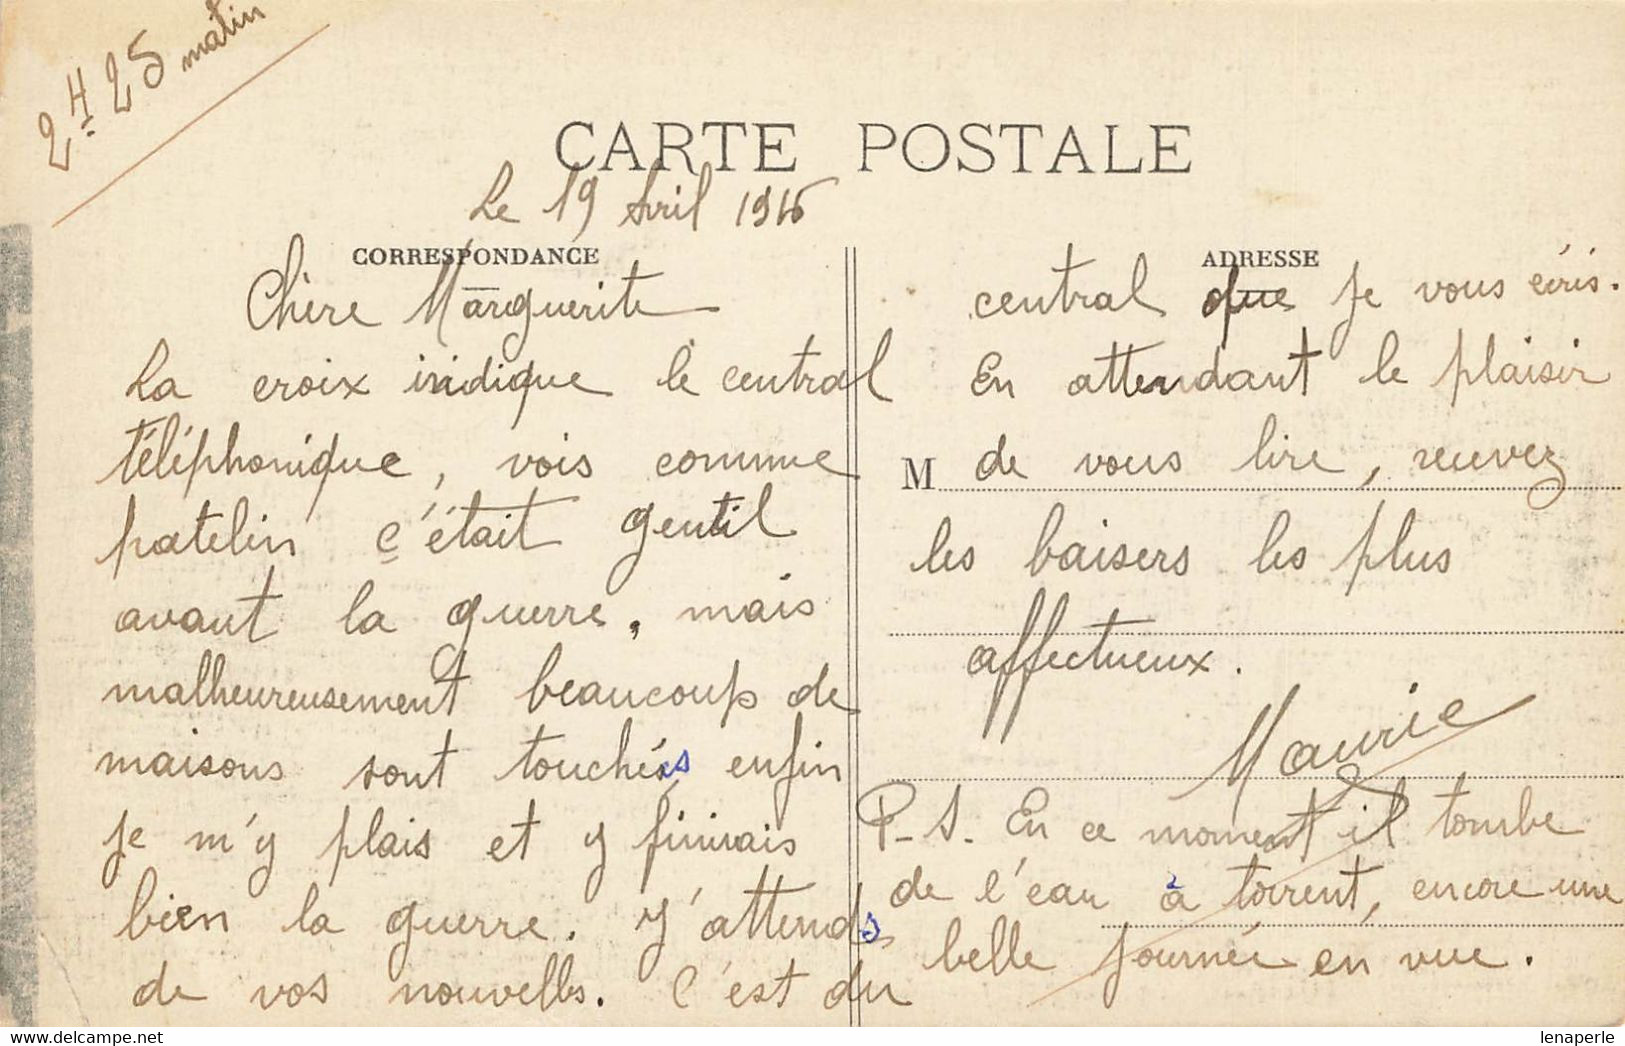 2H. 25 matin
CARTE POSTALE
Le 19 Avril 1916
CORRESPONDANCE
Chère Marguerite
La croix indique le central
téléphonique, vois comme
patelin c'était gentil
avant la guerre, mais
malheureusement beaucoup de
maisons sont touchées enfin
je m'y plais et y finirais
bien la guerre. J'attends
de vos nouvelles. C'est du
ADRESSE
central que je vous écris.
En attendant le plaisir
M de vous lire, recevez
les baisers les plus
affectueux.
Maurice
P-S. En ce moment il tombe
de l'eau à torrent, encore une
belle journée en vue.
lenaperle